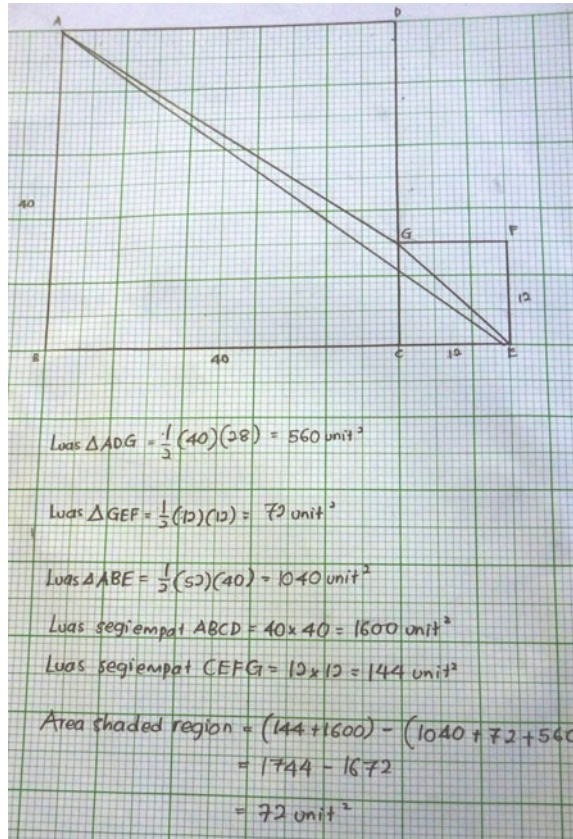 A D
40
G F
12
B 40 C 12 E
Luas △ADG = 1/2 (40)(28) = 560 unit²
Luas △GEF = 1/2 (12)(12) = 72 unit²
Luas △ABE = 1/2 (52)(40) = 1040 unit²
Luas segiempat ABCD = 40 x 40 = 1600 unit²
Luas segiempat CEFG = 12 x 12 = 144 unit²
Area shaded region = (144 + 1600) - (1040 + 72 + 560
= 1744 - 1672
= 72 unit²